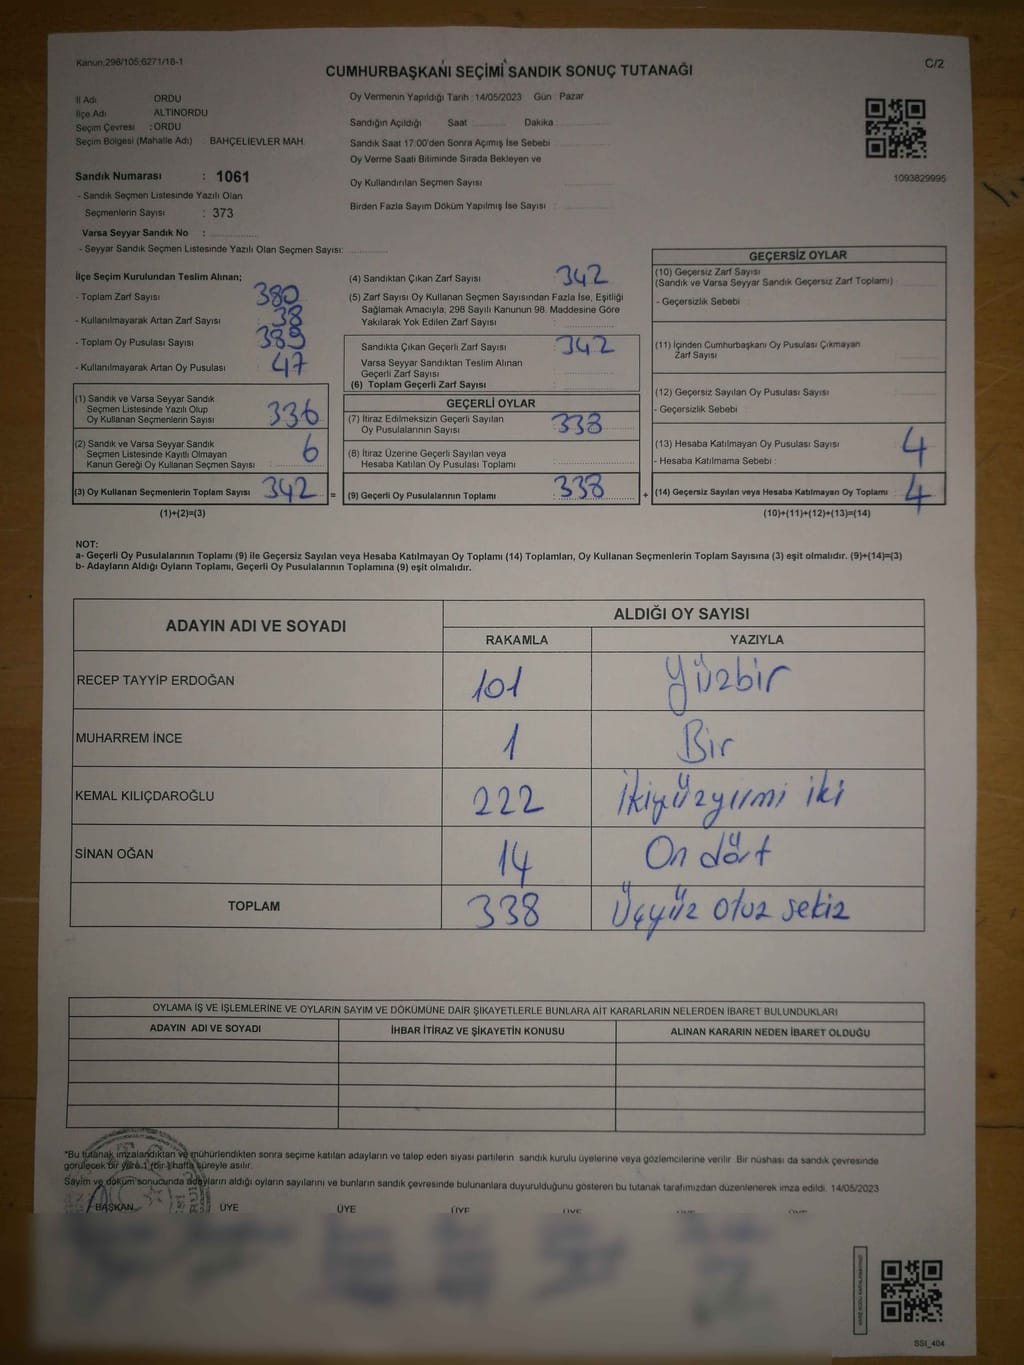 Kanun:298/105;6271/18-1
C/2
CUMHURBAŞKANI SEÇİMİ SANDIK SONUÇ TUTANAĞI
İl Adı ORDU
İlçe Adı ALTINORDU
Seçim Çevresi : ORDU
Seçim Bölgesi (Mahalle Adı) : BAHÇELİEVLER MAH.
Sandık Numarası : 1061
- Sandık Seçmen Listesinde Yazılı Olan
Seçmenlerin Sayısı : 373
Varsa Seyyar Sandık No :
- Seyyar Sandık Seçmen Listesinde Yazılı Olan Seçmen Sayısı:
Oy Vermenin Yapıldığı Tarih : 14/05/2023 Gün : Pazar
Sandığın Açıldığı Saat Dakika :
Sandık Saat 17:00'den Sonra Açımış İse Sebebi
Oy Verme Saati Bitiminde Sırada Bekleyen ve
Oy Kullandırılan Seçmen Sayısı
Birden Fazla Sayım Döküm Yapılmış İse Sayısı :
1093829995
İlçe Seçim Kurulundan Teslim Alınan;
- Toplam Zarf Sayısı 380
- Kullanılmayarak Artan Zarf Sayısı : 38
- Toplam Oy Pusulası Sayısı 389
- Kullanılmayarak Artan Oy Pusulası : 47
(1) Sandık ve Varsa Seyyar Sandık
Seçmen Listesinde Yazılı Olup
Oy Kullanan Seçmenlerin Sayısı 336
(2) Sandık ve Varsa Seyyar Sandık
Seçmen Listesinde Kayıtlı Olmayan
Kanun Gereği Oy Kullanan Seçmen Sayısı 6
(3) Oy Kullanan Seçmenlerin Toplam Sayısı 342 =
(1)+(2)=(3)
(4) Sandıktan Çıkan Zarf Sayısı 342
(5) Zarf Sayısı Oy Kullanan Seçmen Sayısından Fazla İse, Eşitliği
Sağlamak Amacıyla; 298 Sayılı Kanunun 98. Maddesine Göre
Yakılarak Yok Edilen Zarf Sayısı :
Sandıkta Çıkan Geçerli Zarf Sayısı : 342
Varsa Seyyar Sandıktan Teslim Alınan
Geçerli Zarf Sayısı
(6) Toplam Geçerli Zarf Sayısı
GEÇERLİ OYLAR
(7) İtiraz Edilmeksizin Geçerli Sayılan
Oy Pusulalarının Sayısı 338
(8) İtiraz Üzerine Geçerli Sayılan veya
Hesaba Katılan Oy Pusulası Toplamı
(9) Geçerli Oy Pusulalarının Toplamı 338 +
GEÇERSİZ OYLAR
(10) Geçersiz Zarf Sayısı
(Sandık ve Varsa Seyyar Sandık Geçersiz Zarf Toplamı) :
- Geçersizlik Sebebi
(11) İçinden Cumhurbaşkanı Oy Pusulası Çıkmayan
Zarf Sayısı
(12) Geçersiz Sayılan Oy Pusulası Sayısı
- Geçersizlik Sebebi
(13) Hesaba Katılmayan Oy Pusulası Sayısı 4
- Hesaba Katılmama Sebebi :
(14) Geçersiz Sayılan veya Hesaba Katılmayan Oy Toplamı 4
(10)+(11)+(12)+(13)=(14)
NOT:
a- Geçerli Oy Pusulalarının Toplamı (9) ile Geçersiz Sayılan veya Hesaba Katılmayan Oy Toplamı (14) Toplamları, Oy Kullanan Seçmenlerin Toplam Sayısına (3) eşit olmalıdır. (9)+(14)=(3)
b- Adayların Aldığı Oyların Toplamı, Geçerli Oy Pusulalarının Toplamına (9) eşit olmalıdır.
ADAYIN ADI VE SOYADI ALDIĞI OY SAYISI
RAKAMLA YAZIYLA
RECEP TAYYİP ERDOĞAN 101 Yüzbir
MUHARREM İNCE 1 Bir
KEMAL KILIÇDAROĞLU 222 İkiyüzyirmi iki
SİNAN OĞAN 14 On dört
TOPLAM 338 Üçyüz otuz sekiz
OYLAMA İŞ VE İŞLEMLERİNE VE OYLARIN SAYIM VE DÖKÜMÜNE DAİR ŞİKAYETLERLE BUNLARA AİT KARARLARIN NELERDEN İBARET BULUNDUKLARI
ADAYIN ADI VE SOYADI İHBAR İTİRAZ VE ŞİKAYETİN KONUSU ALINAN KARARIN NEDEN İBARET OLDUĞU
*Bu tutanak imzalandıktan ve mühürlendikten sonra seçime katılan adayların ve talep eden siyasi partilerin sandık kurulu üyelerine veya gözlemcilerine verilir. Bir nüshası da sandık çevresinde
görülecek bir yere 1 (bir) hafta süreyle asılır.
Sayım ve döküm sonucunda adayların aldığı oyların sayılarını ve bunların sandık çevresinde bulunanlara duyurulduğunu gösteren bu tutanak tarafımızdan düzenlenerek imza edildi. 14/05/2023
BAŞKAN ÜYE ÜYE ÜYE ÜYE
SSI_404